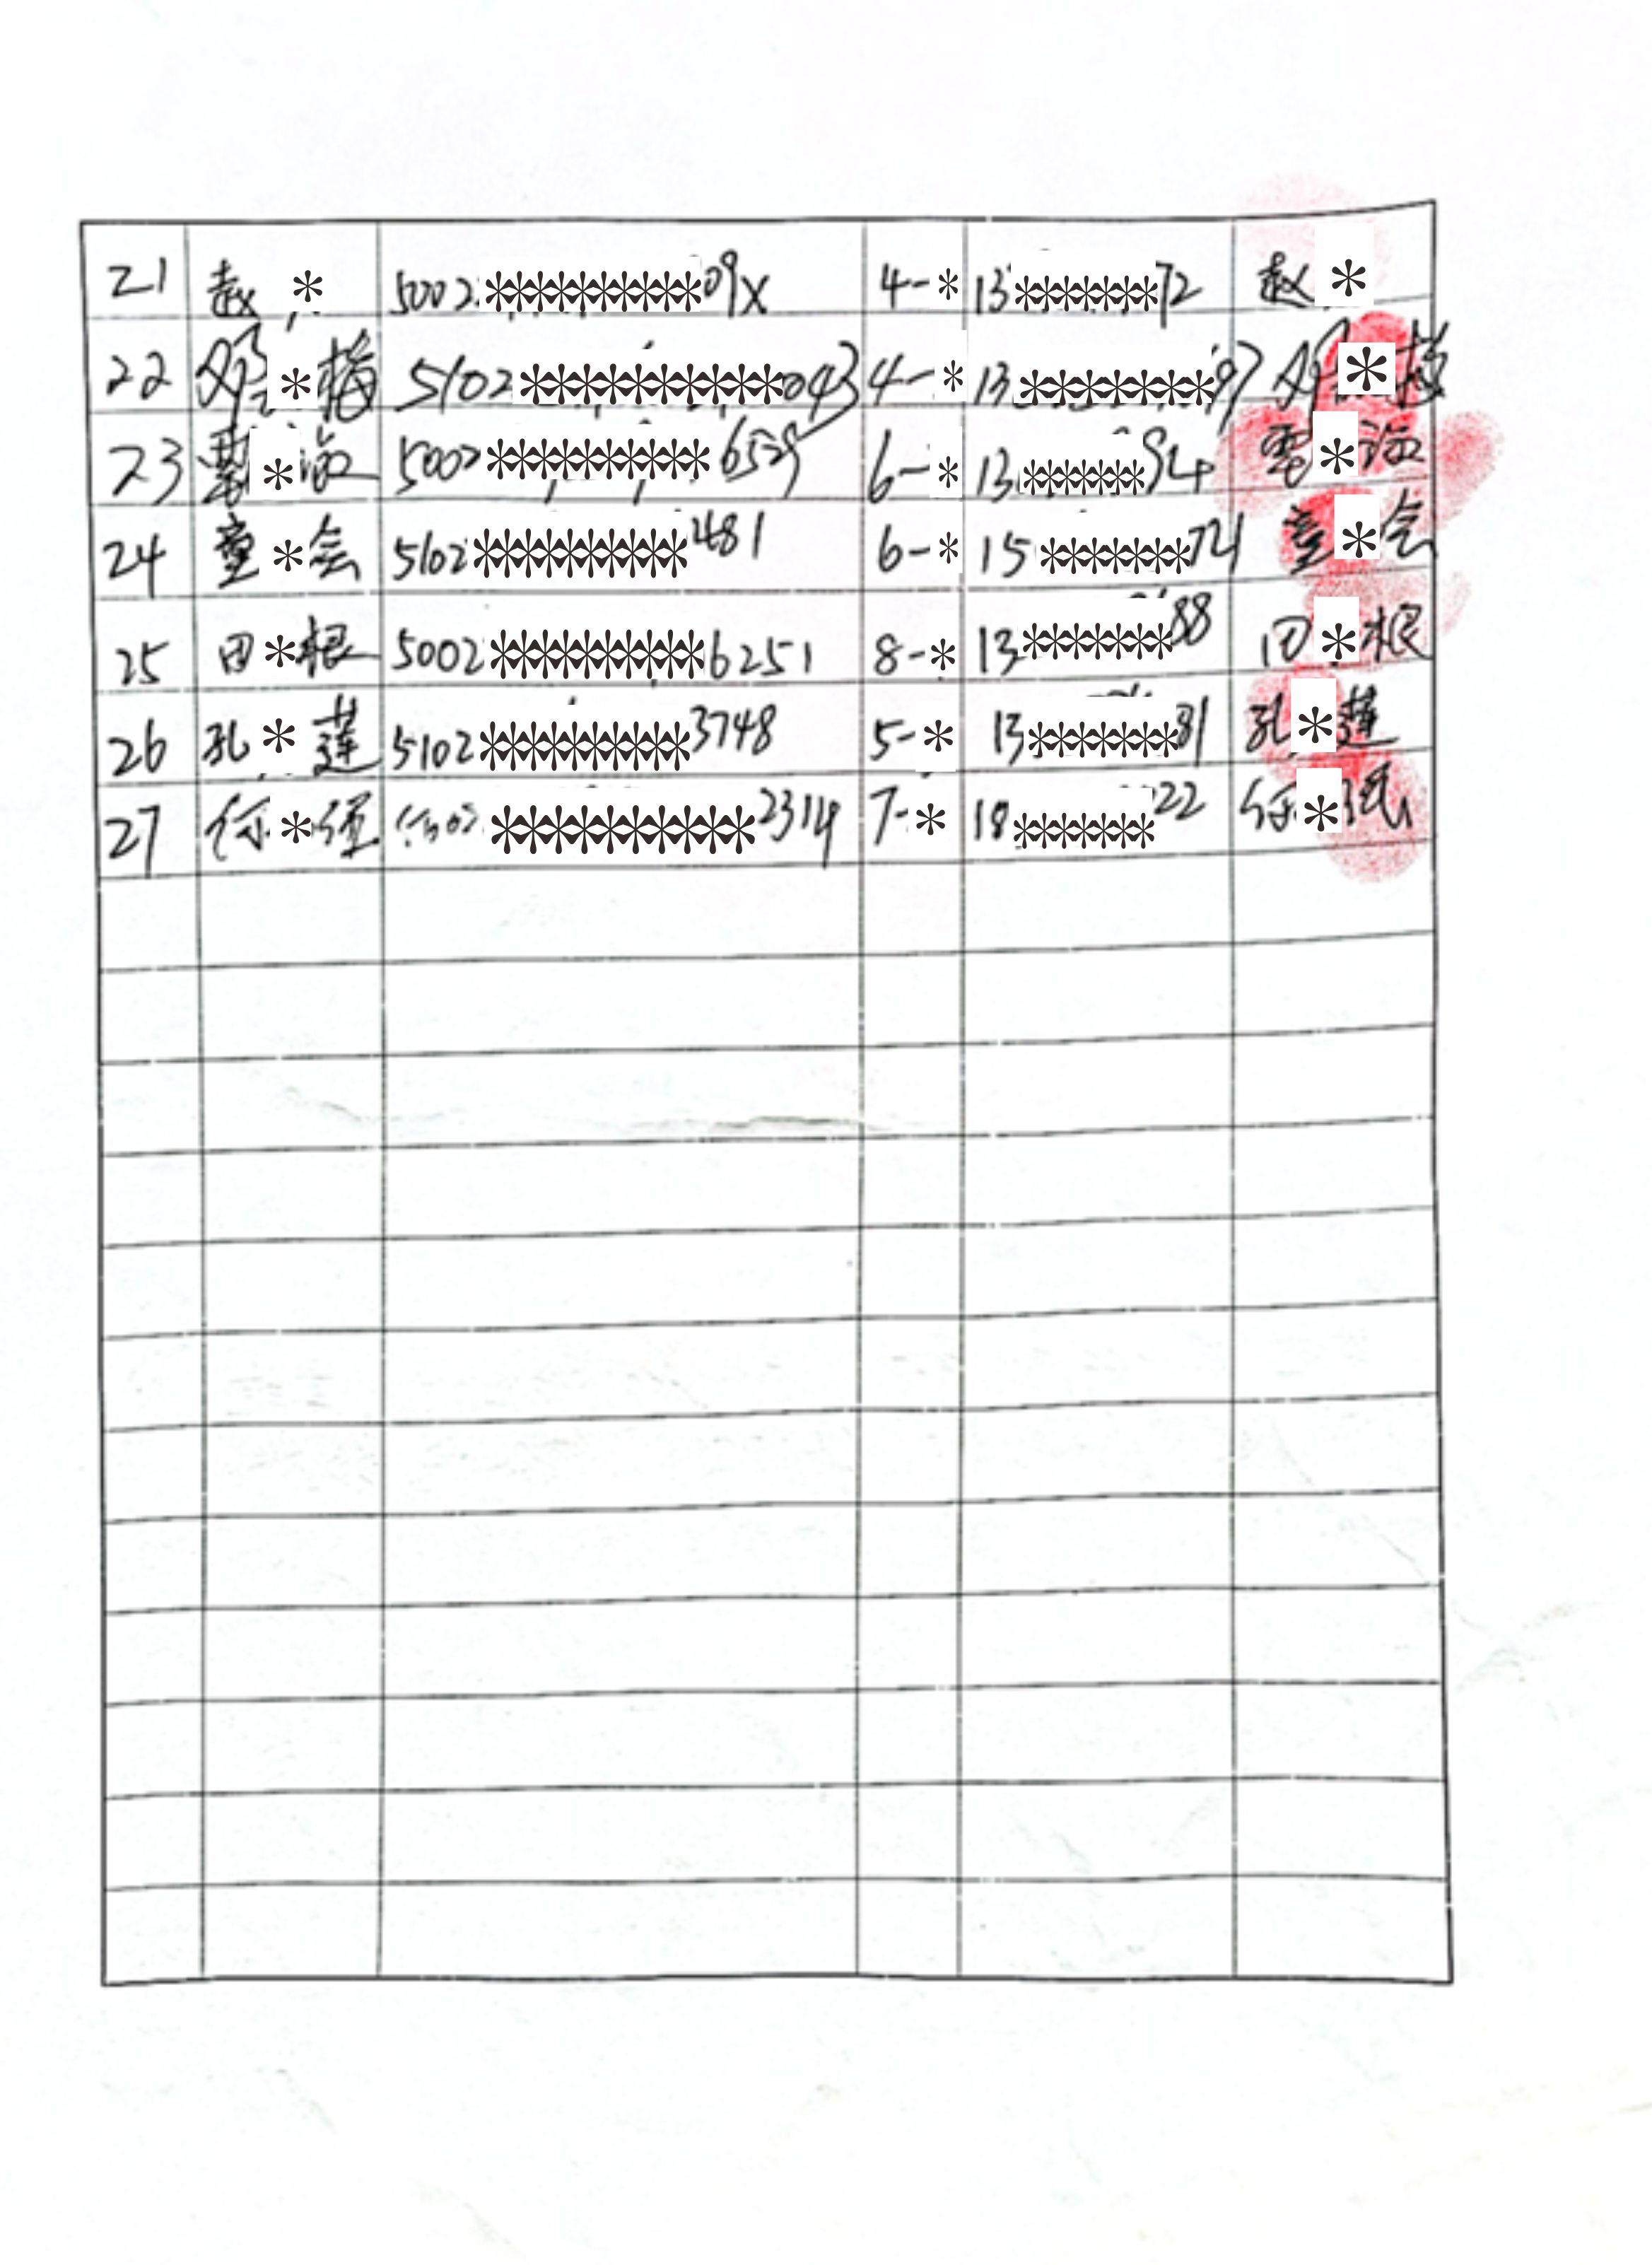 21 赵* 5002*********09X 4-* 13*******72 赵*
22 邓*梅 5102***********043 4-* 13********97 邓*梅
23 *淑 5002*********6529 6-* 13*******94 *淑
24 童*会 5102*********2481 6-* 15*******74 童*会
25 田*根 5002*********6251 8-* 13*******88 田*根
26 孔*莲 5102*********3748 5-* 13*******81 孔*莲
27 任* ***********2314 7-* 18*******22 任*